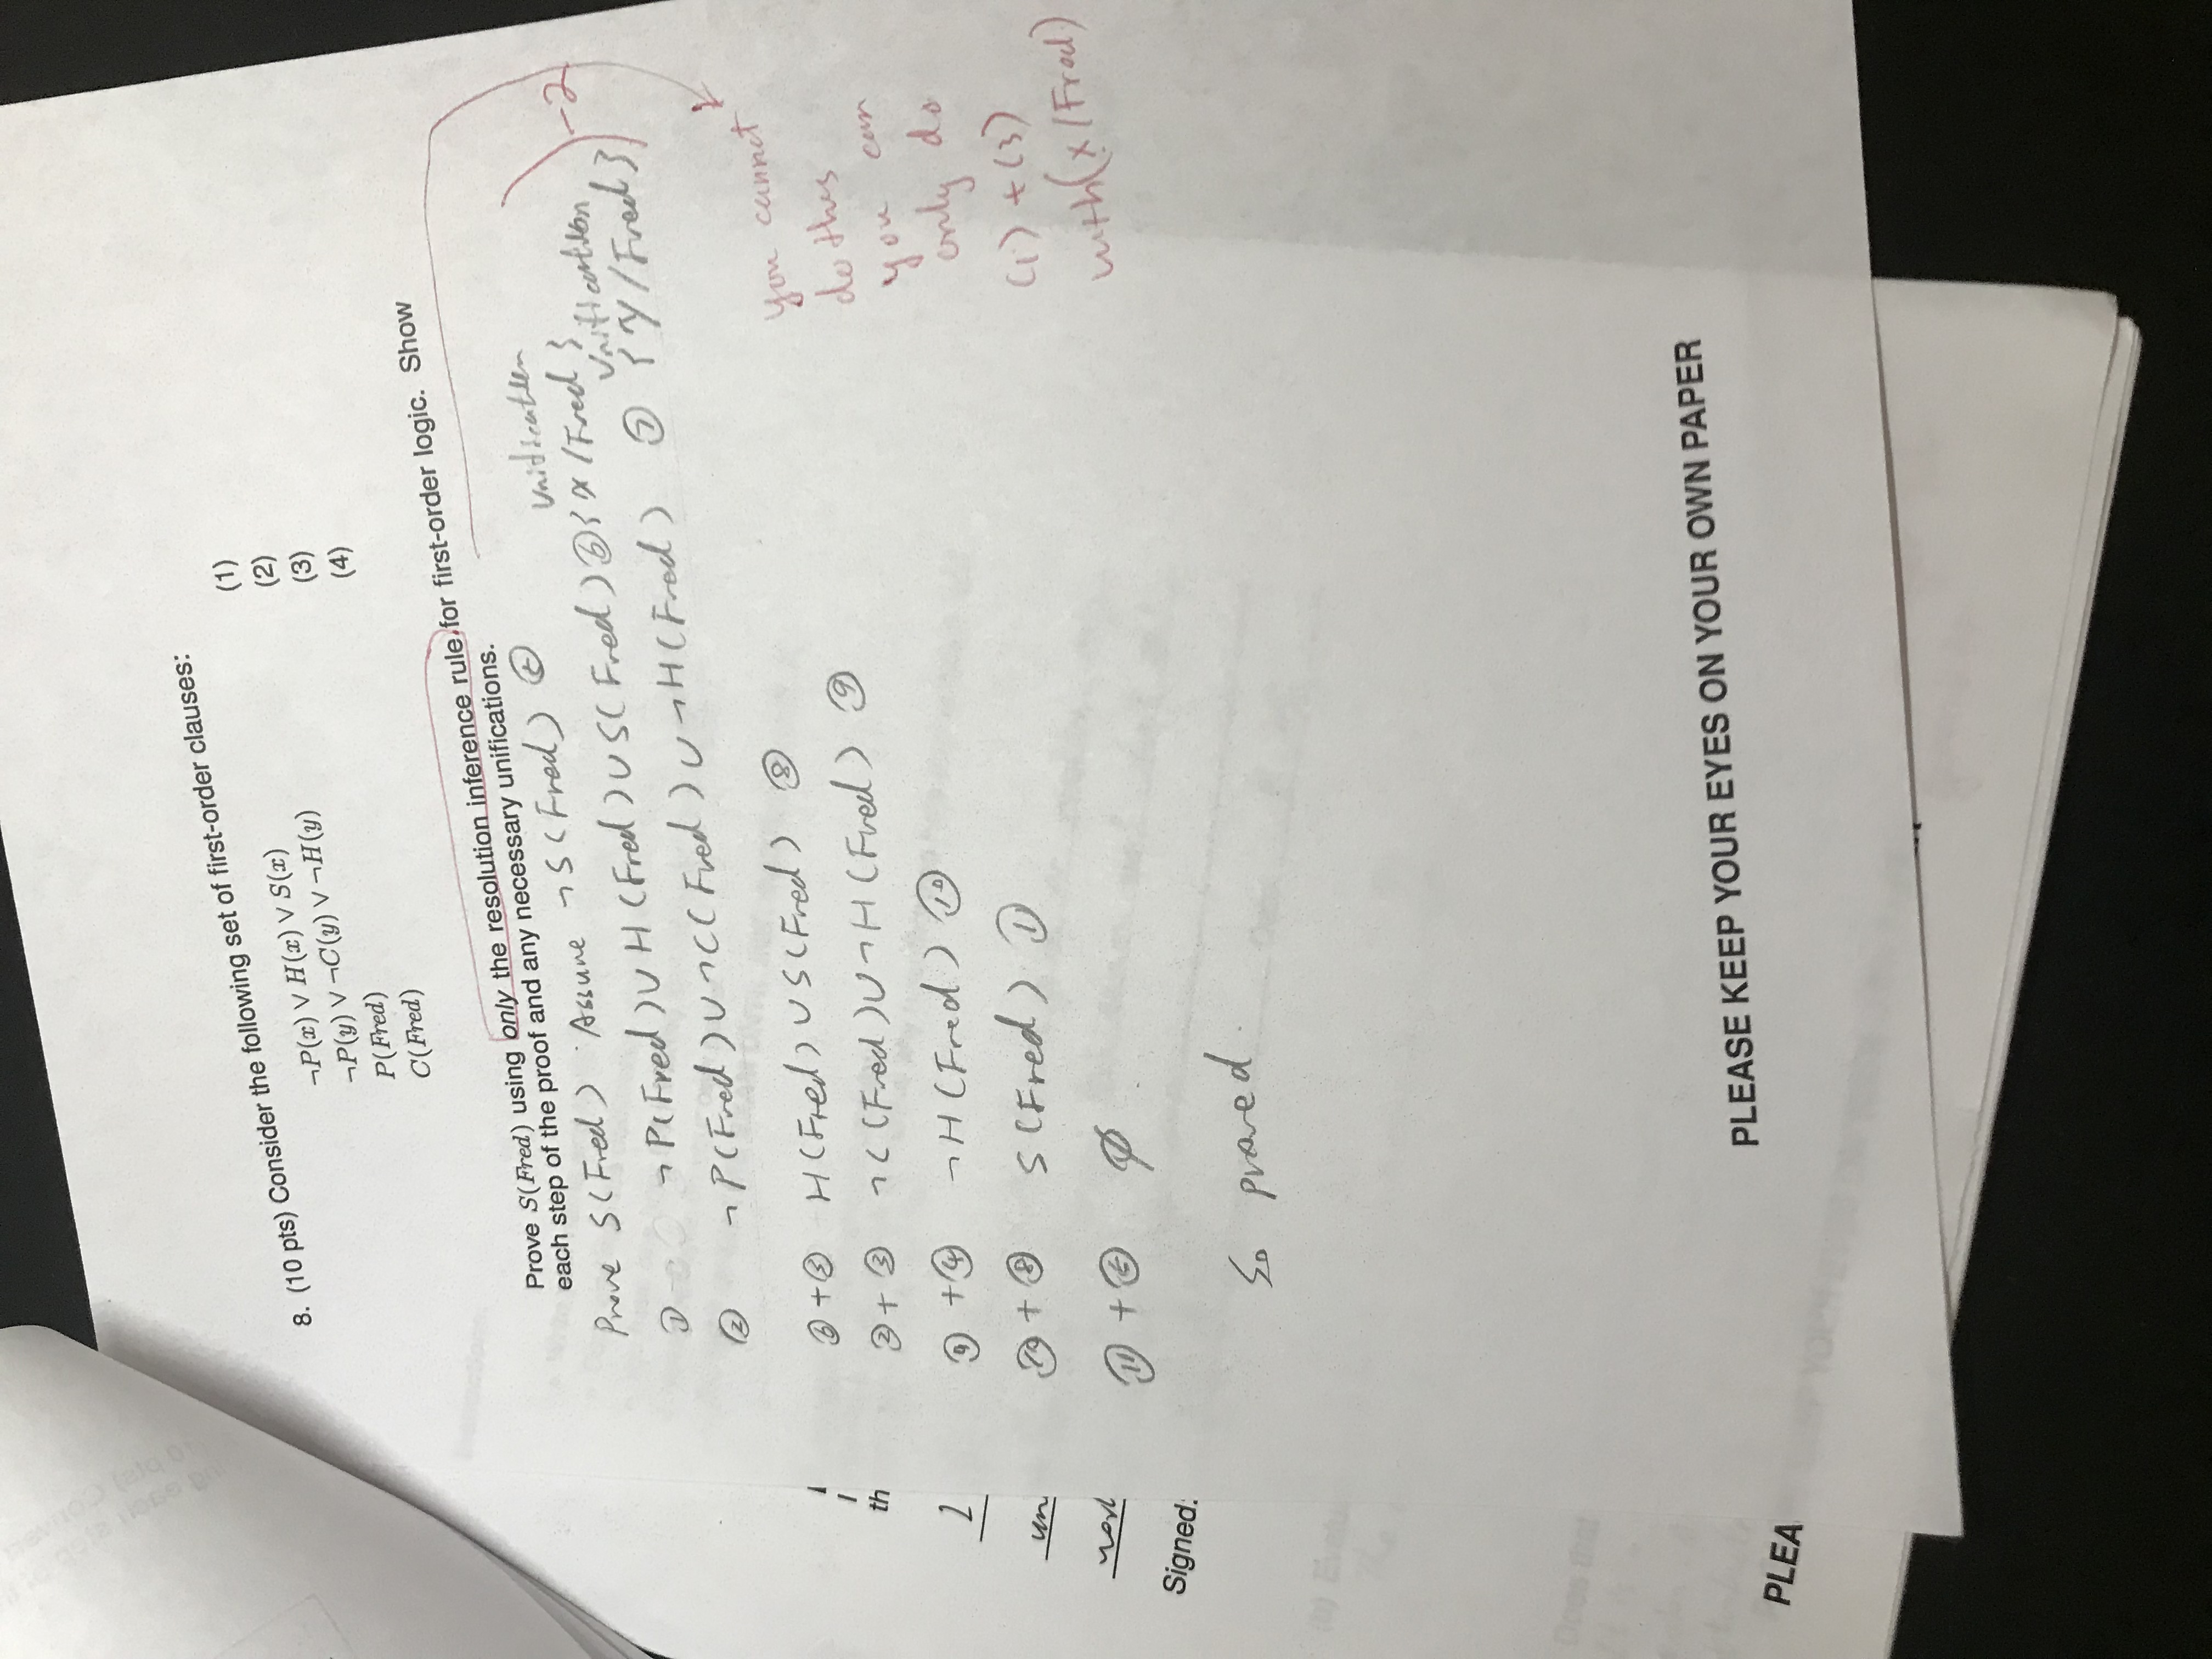 8. (10 pts) Consider the following set of first-order clauses:
¬P(x) ∨ H(x) ∨ S(x) (1)
¬P(y) ∨ ¬C(y) ∨ ¬H(y) (2)
P(Fred) (3)
C(Fred) (4)
Prove S(Fred) using only the resolution inference rule for first-order logic. Show
each step of the proof and any necessary unifications.
Prove S(Fred) Assume ¬S(Fred) ⑤
Unification
① ¬P(Fred) ∪ H(Fred) ∪ S(Fred) ⑥ {x/Fred}
Unification
② ¬P(Fred) ∪ ¬C(Fred) ∪ ¬H(Fred) ⑦ {y/Fred}
-2
⑥+③ H(Fred) ∪ S(Fred) ⑧
②+③ ¬C(Fred) ∪ ¬H(Fred) ⑨
⑨+④ ¬H(Fred) ⑩
⑩+⑧ S(Fred) ⑪
⑪+⑤ ∅
So proved.
you cannot
do this
you can
only do
(1)+(3)
with(x/Fred)
th
un
Signed:
(b) Evalu
Does that
PLEASE KEEP YOUR EYES ON YOUR OWN PAPER
PLEA